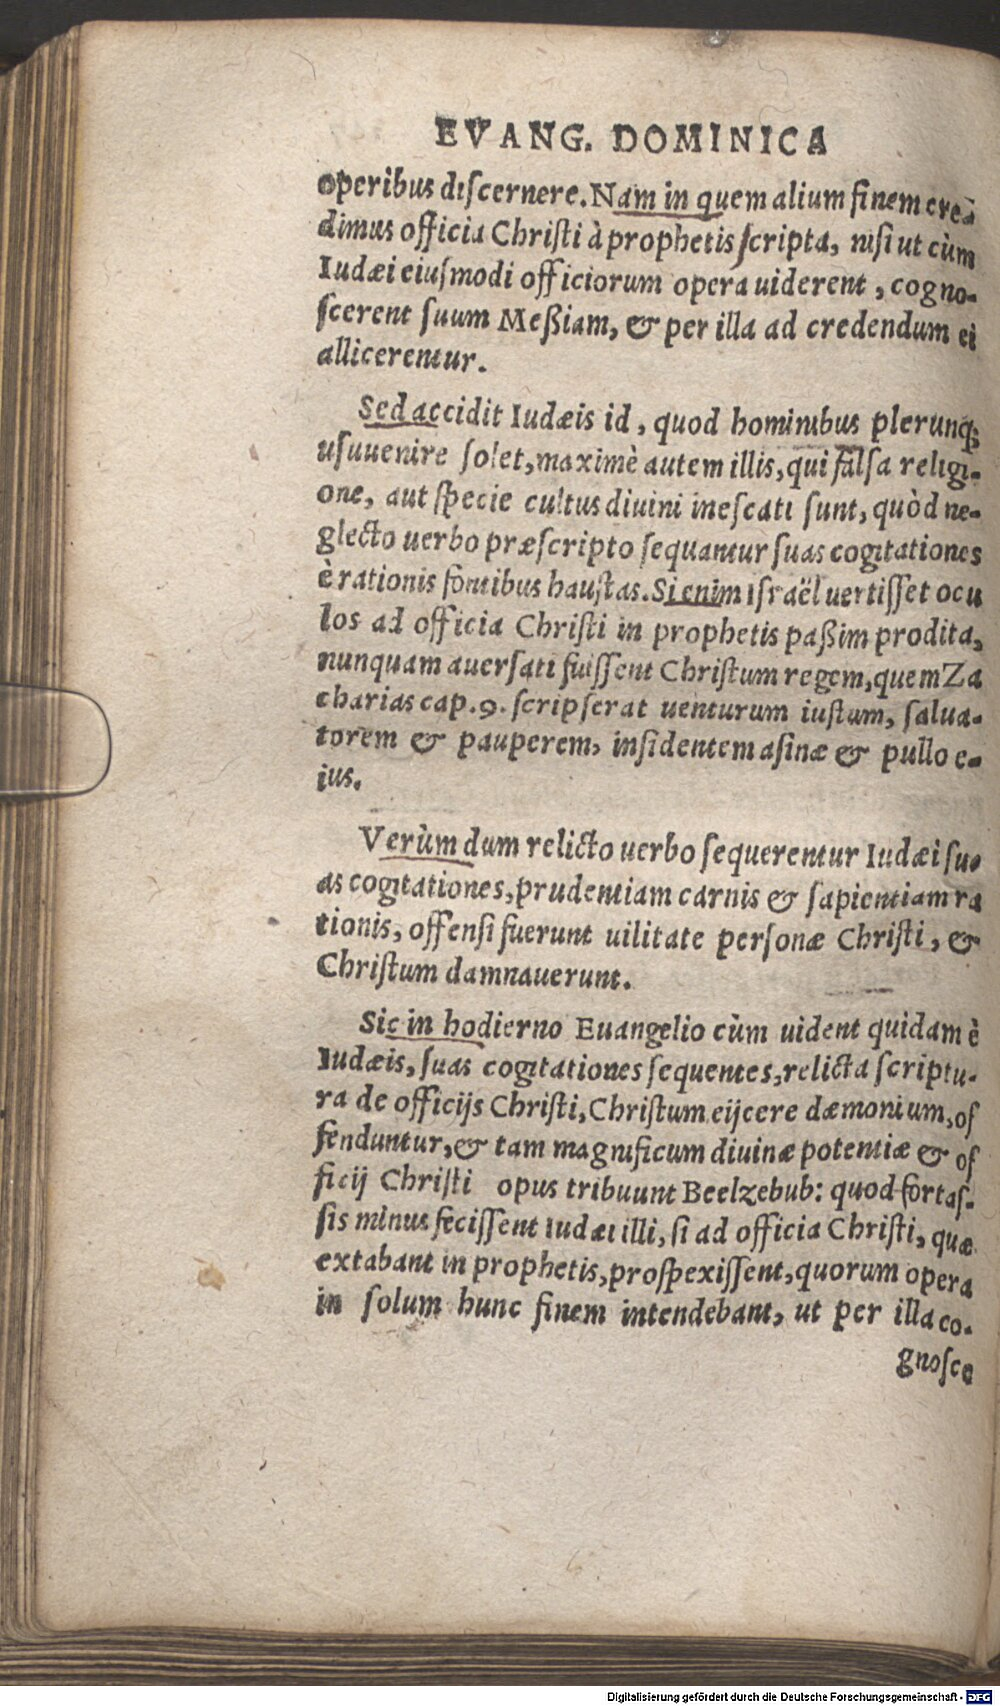 EVANG. DOMINICA
operibus discernere. Nam in quem alium finem cre-
dimus officia Christi à prophetis scripta, nisi ut cùm
Iudæi eiusmodi officiorum opera uiderent, cogno-
scerent suum Meßiam, & per illa ad credendum ei
allicerentur.
Sed accidit Iudæis id, quod hominibus plerunq;
usuuenire solet, maximè autem illis, qui falsa religi-
one, aut specie cultus diuini inescati sunt, quòd ne-
glecto uerbo præscripto sequantur suas cogitationes
è rationis fontibus haustas. Si enim Israël uertisset ocu
los ad officia Christi in prophetis paßim prodita,
nunquam auersati fuissent Christum regem, quem Za
charias cap. 9. scripserat uenturum iustum, salua-
torem & pauperem, insidentem asinæ & pullo e-
ius.
Verùm dum relicto uerbo sequerentur Iudæi su-
as cogitationes, prudentiam carnis & sapientiam ra
tionis, offensi fuerunt uilitate personæ Christi, &
Christum damnauerunt.
Sic in hodierno Euangelio cùm uident quidam è
Iudæis, suas cogitationes sequentes, relicta scriptu-
ra de officijs Christi, Christum eijcere dæmonium, of
fenduntur, & tam magnificum diuinæ potentiæ & of
ficij Christi opus tribuunt Beelzebub: quod fortas-
sis minus fecissent Iudæi illi, si ad officia Christi, quæ
extabant in prophetis, prospexissent, quorum opera
in solum hunc finem intendebant, ut per illa co-
gnosce
Digitalisierung gefördert durch die Deutsche Forschungsgemeinschaft - DFG